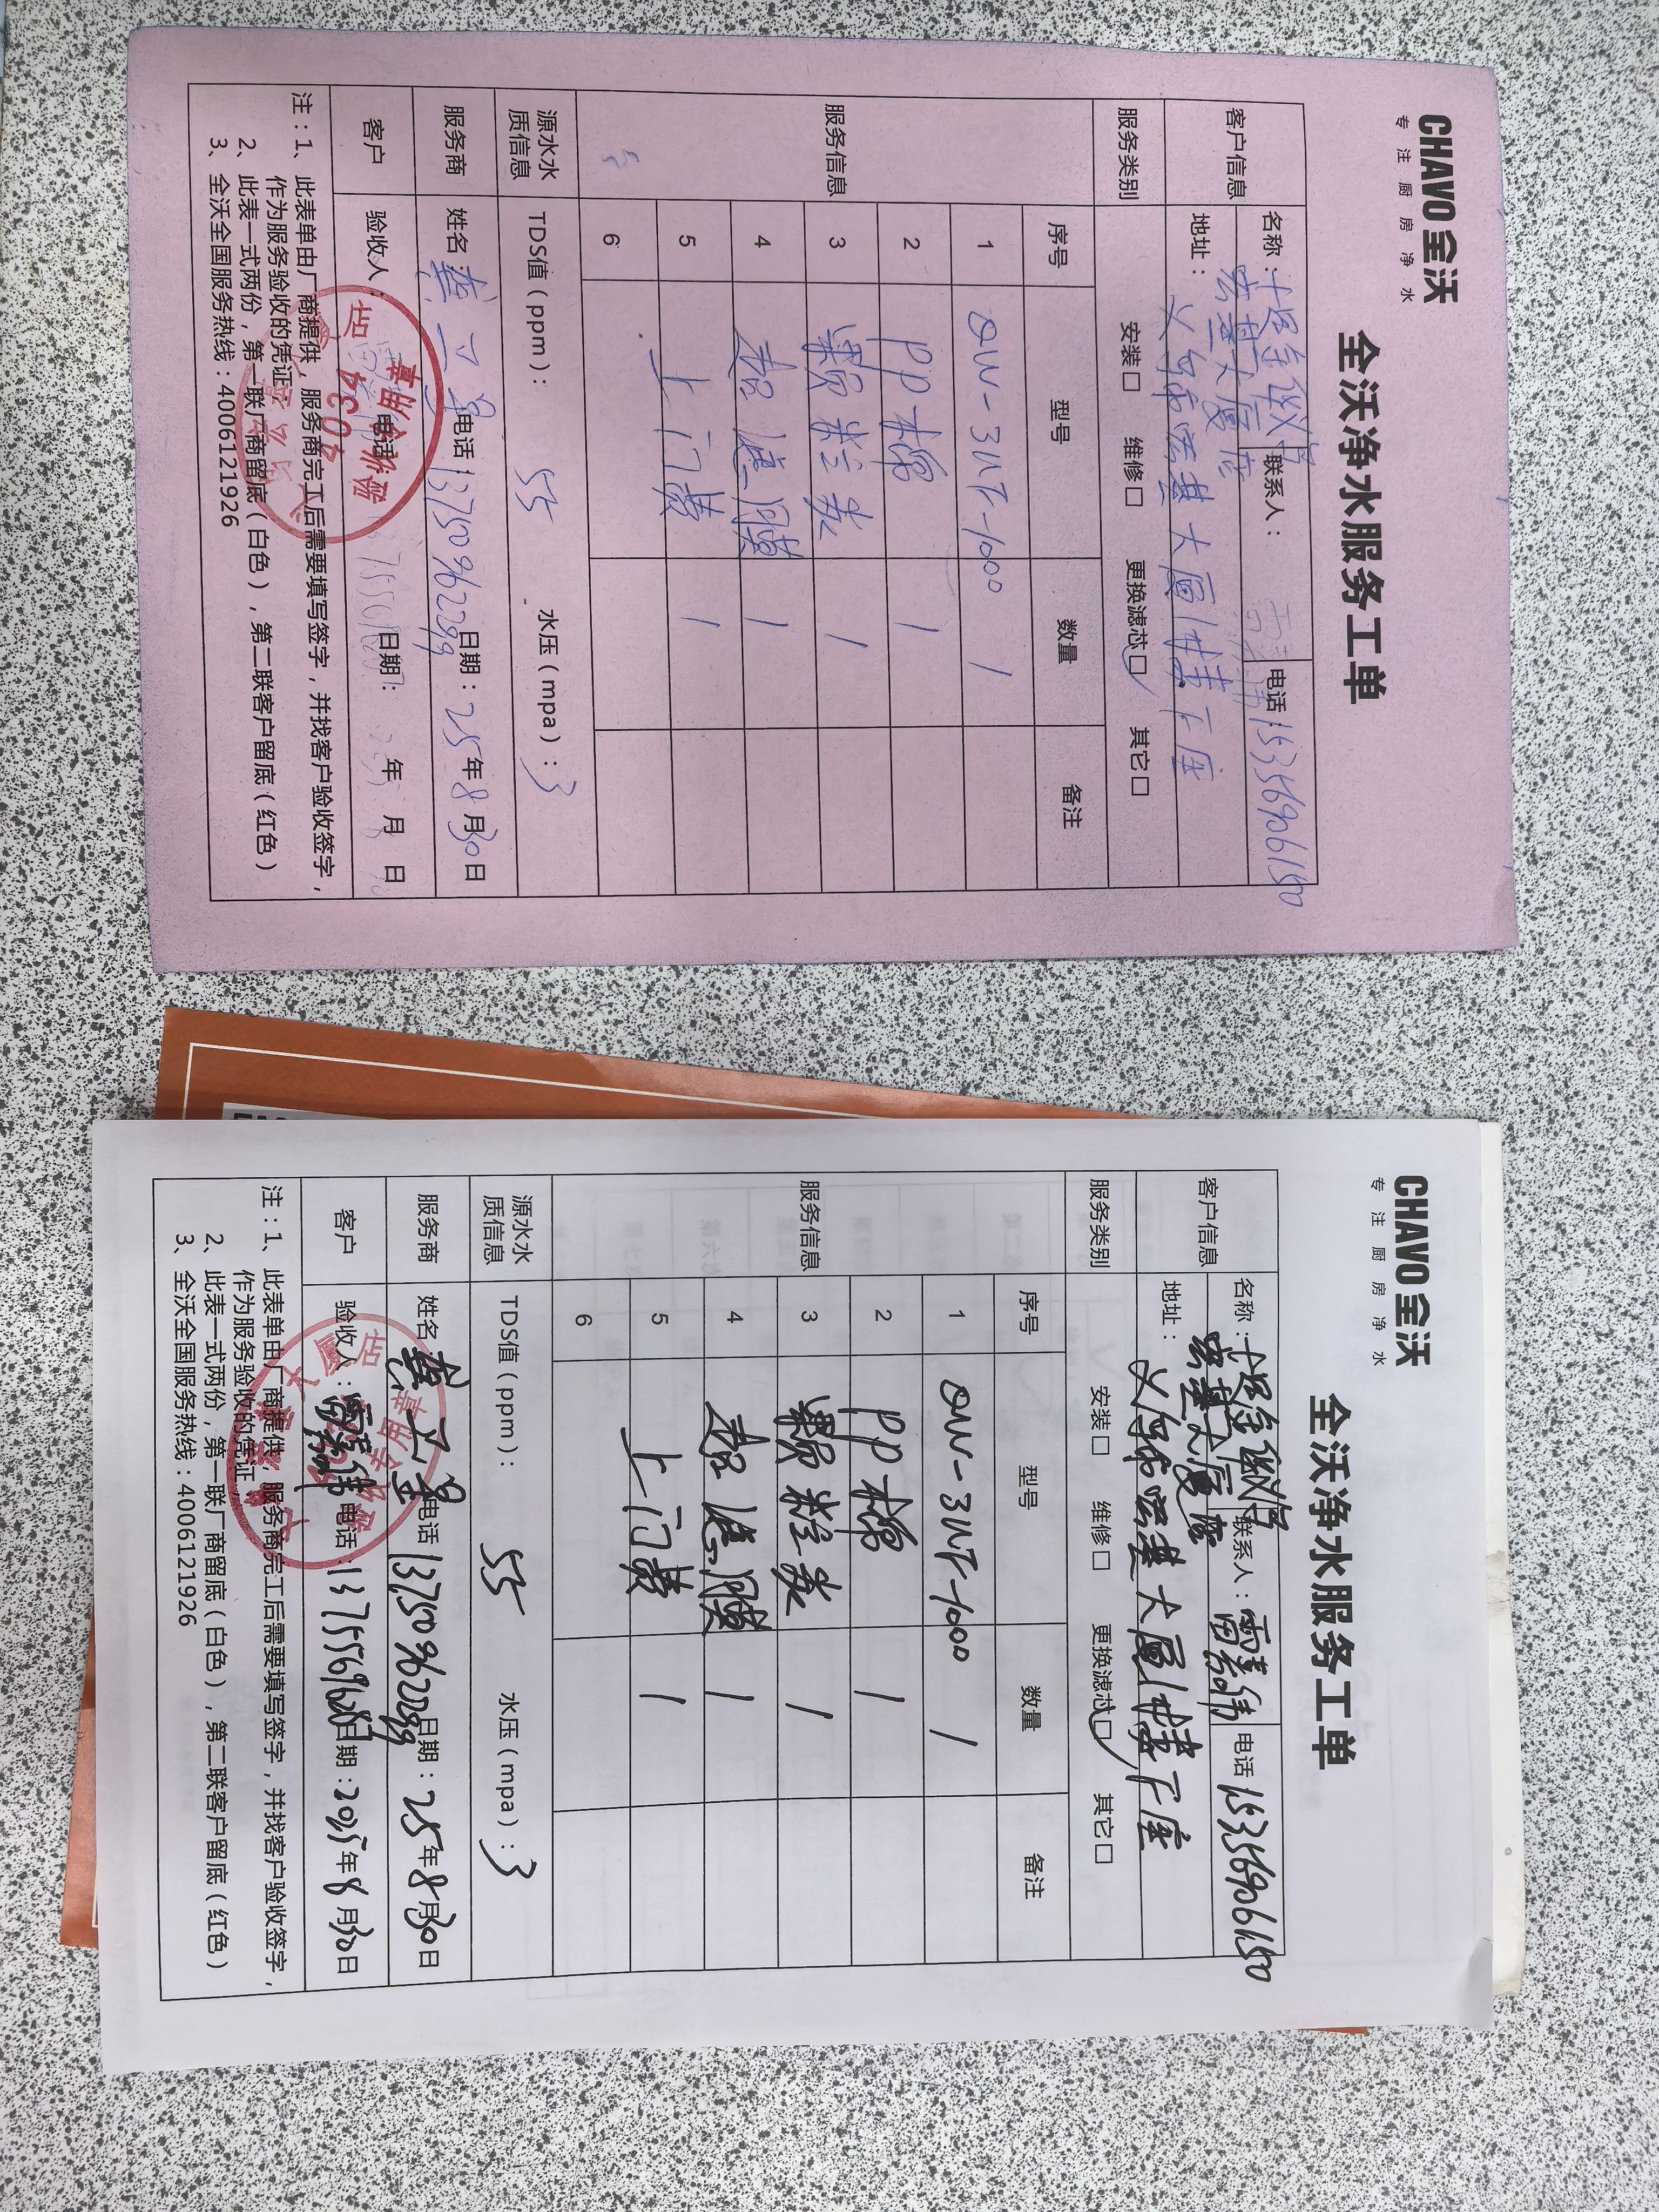 CHAVO 全沃
专注厨房净水
全沃净水服务工单
客户信息 名称： 联系人： 电话 15356906150
地址： 大厦
服务类别 安装□ 维修□ 更换滤芯□ 其它□
服务信息 序号 型号 数量 备注
1 QW-3WF-1000 1
2 PP棉 1
3 颗粒炭 1
4 超滤膜 1
5 上门费 1
6
源水水质信息 TDS值（ppm）： 55 水压（mpa）：3
服务商 姓名 电话 13750962299 日期：25年8月30日
客户 验收人： 电话： 日期： 年 月 日
验收专用章
注：1、此表单由厂商提供，服务商完工后需要填写签字，并找客户验收签字，
作为服务验收的凭证
2、此表一式两份，第一联厂商留底（白色），第二联客户留底（红色）
3、全沃全国服务热线：4006121926
CHAVO 全沃
专注厨房净水
全沃净水服务工单
客户信息 名称： 联系人： 电话 15356906150
地址： 大厦
服务类别 安装□ 维修□ 更换滤芯□ 其它□
服务信息 序号 型号 数量 备注
1 QW-3WF-1000 1
2 PP棉 1
3 颗粒炭 1
4 超滤膜 1
5 上门费 1
6
源水水质信息 TDS值（ppm）： 55 水压（mpa）：3
服务商 姓名 电话 13750962299 日期：25年8月30日
客户 验收人： 电话： 日期：2025年8月30日
验收专用章
注：1、此表单由厂商提供，服务商完工后需要填写签字，并找客户验收签字，
作为服务验收的凭证
2、此表一式两份，第一联厂商留底（白色），第二联客户留底（红色）
3、全沃全国服务热线：4006121926